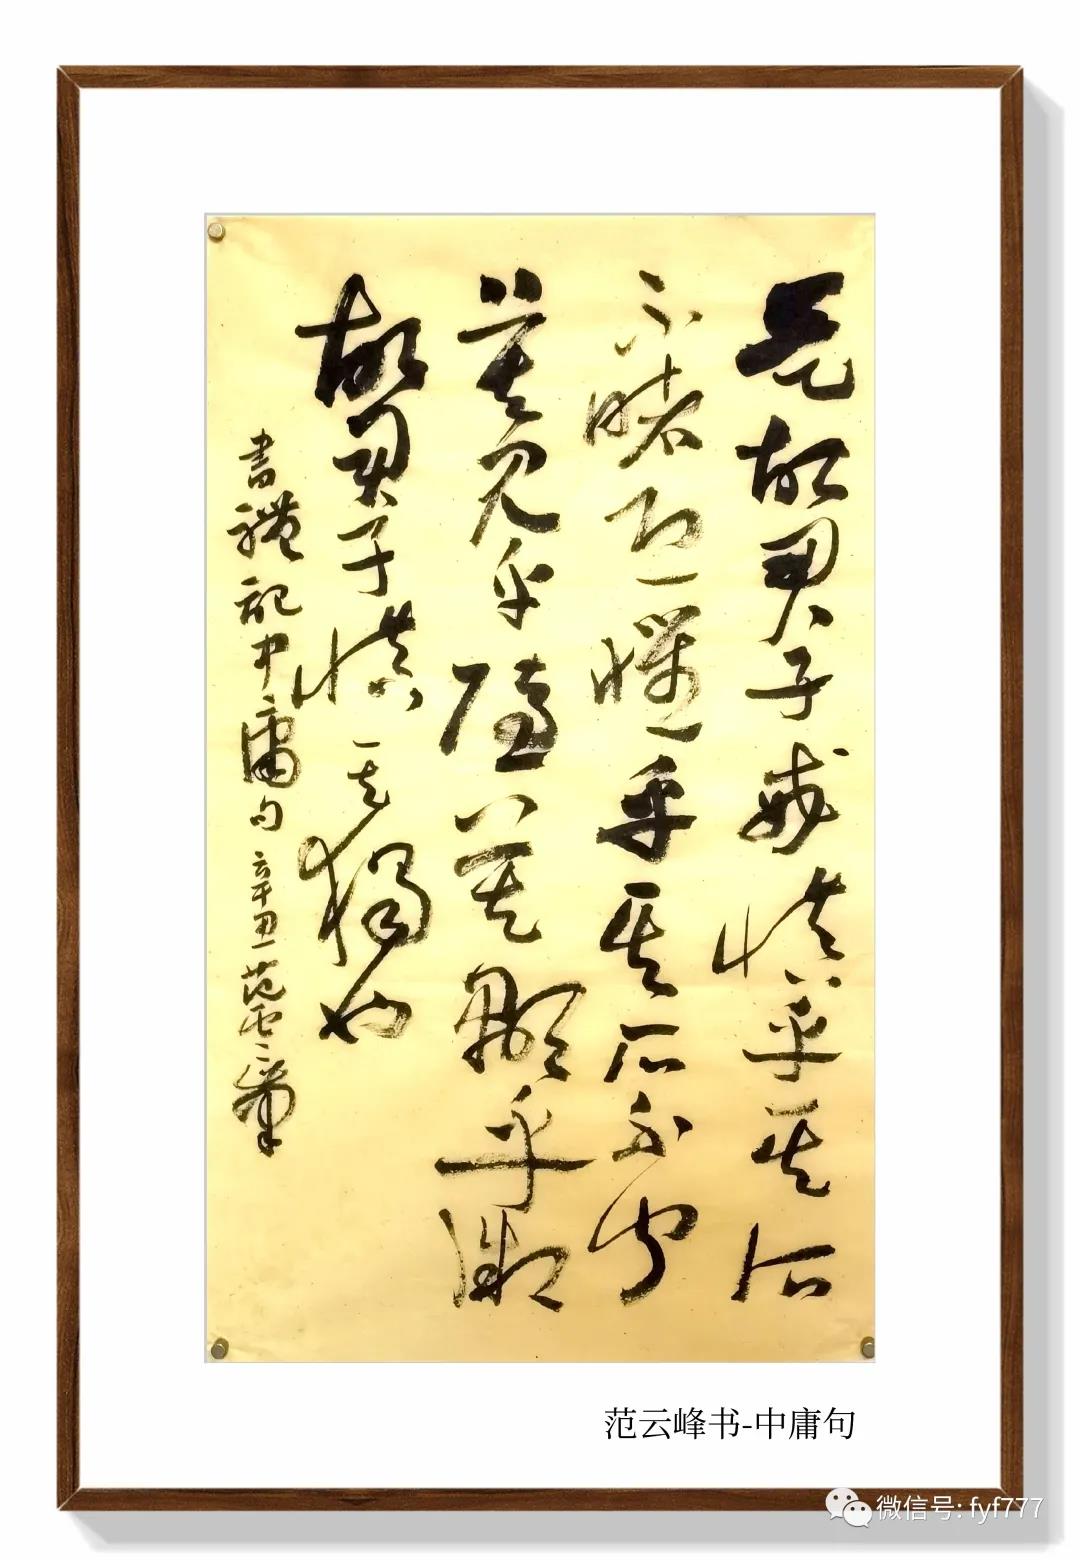 是故君子戒慎乎其所
不睹恐懼乎其所不聞
莫見乎隱莫顯乎微
故君子慎其獨也
書禮記中庸句 辛丑 范雲峯
范云峰书-中庸句
微信号: fyf777